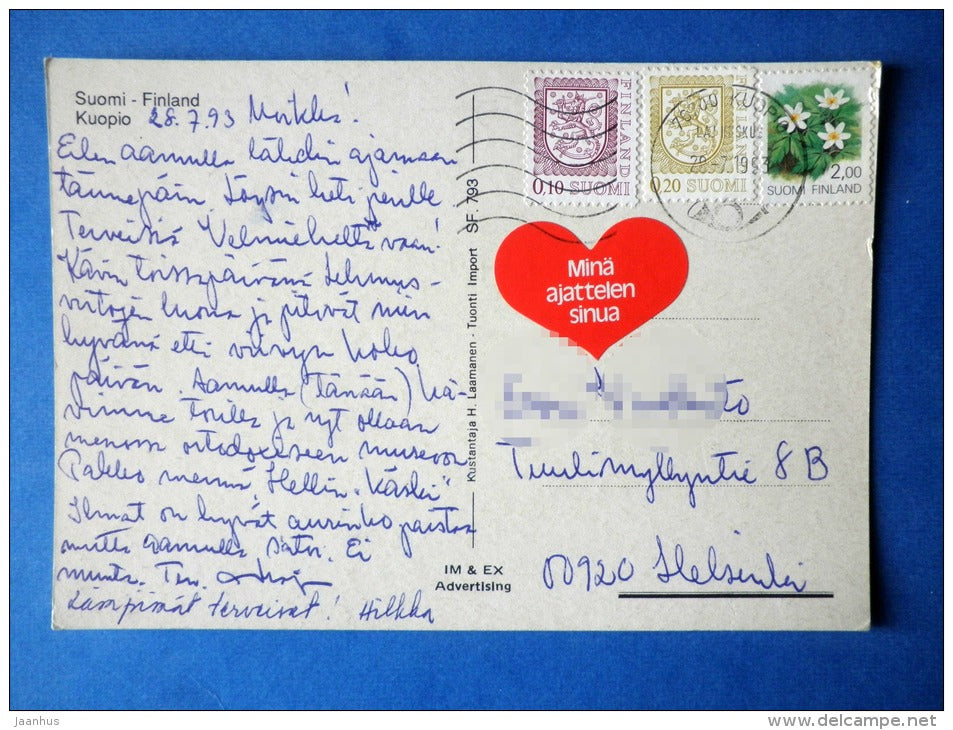 Suomi - Finland
Kuopio 28.7.93
Eilen aamulla lähdin ajamaan
tännepäin. Löysin heti perille
Terveisiä vaan!
Kävin toissapäivänä Lehmus-
luona ja pitivät niin
hyvänä että viivyin koko
päivän. Aamulla (tänään) kä-
vimme torilla ja nyt ollaan
menossa ortodokseseen museoon
Pakko mennä, Hellin "Käsky"
Ilmat on hyvät aurinko paistaa
mutta aamulla satoi. Ei
muuta. Terv.
Lämpimät terveiset! Hilkka
Kustantaja H. Laamanen - Tuonti Import SF. 793
IM & EX
Advertising
FINLAND
0.10 SUOMI
FINLAND
0.20 SUOMI
2,00
SUOMI FINLAND
KUOPIO
Minä
ajattelen
sinua
Tuulimyllyntie 8 B
00920 Helsinki
Jaanhus
www.delcampe.net